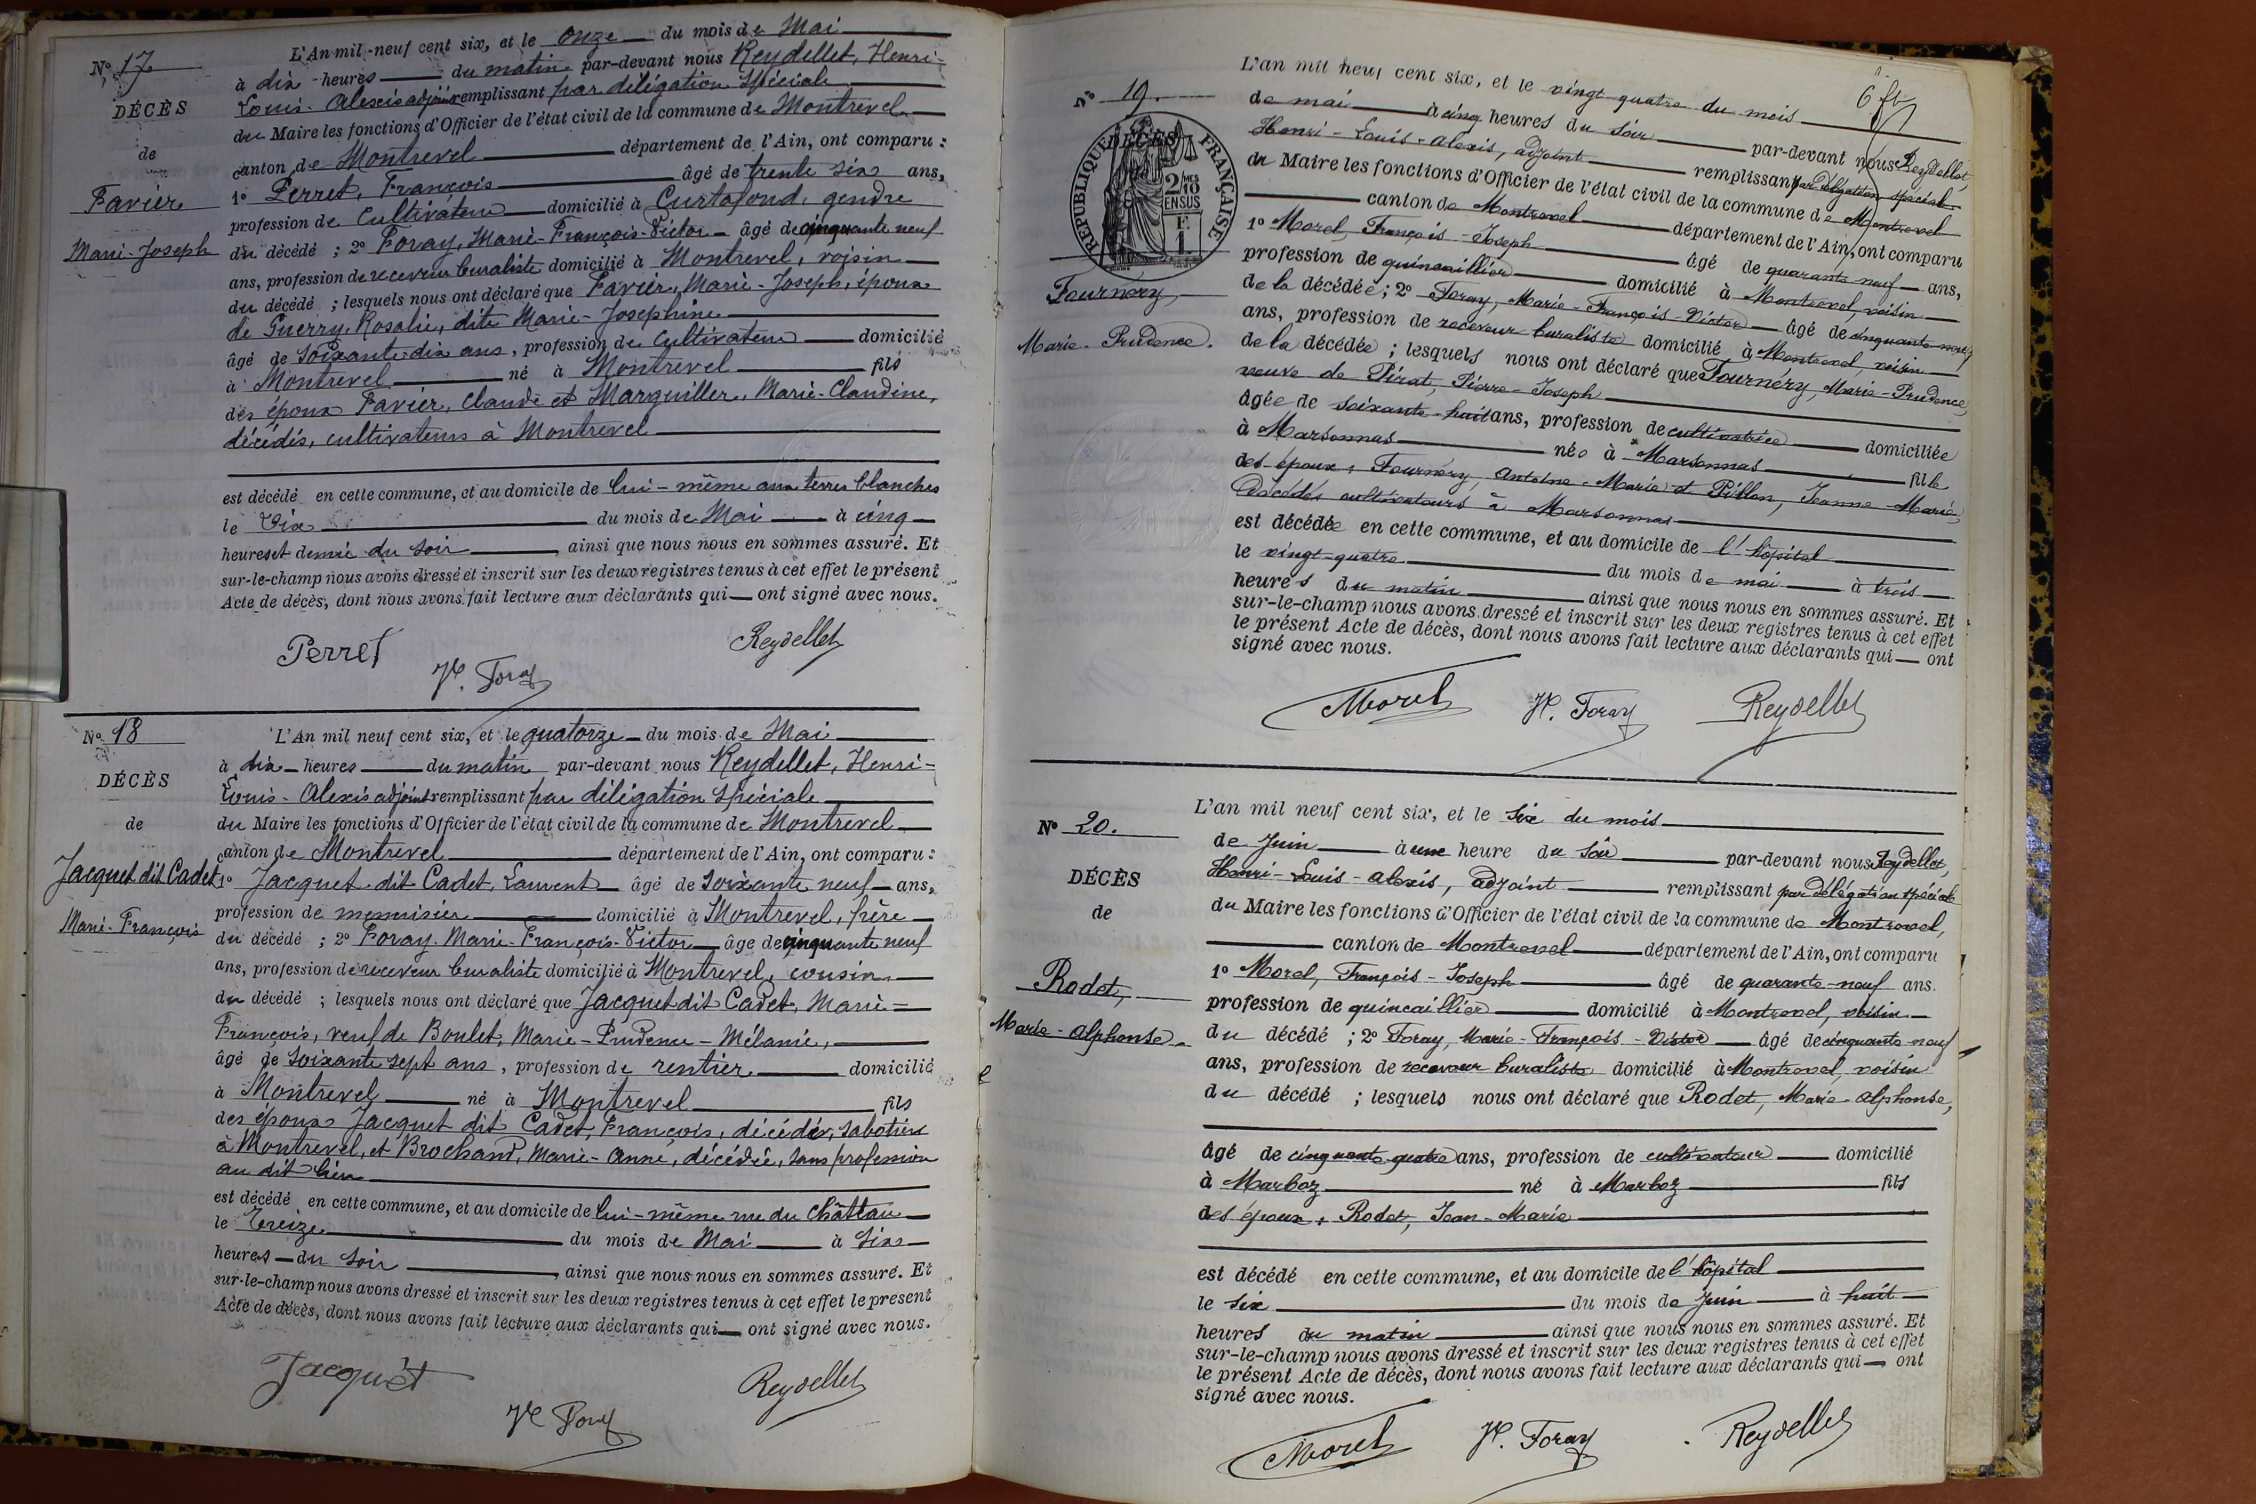 Nº 17
DÉCÈS
de
Favier
Marie-Joseph
L'An mil-neuf cent six, et le onze du mois de Mai
à dix heures du matin par-devant nous Reydellet, Henri-
Louis-Alexis adjoint remplissant par délégation spéciale
du Maire les fonctions d'Officier de l'état civil de la commune de Montrevel
canton de Montrevel département de l'Ain, ont comparu :
1º Perret, François âgé de trente six ans,
profession de cultivateur domicilié à Curtafond, gendre
du décédé ; 2º Foray, Marie-François-Victor âgé de cinquante neuf
ans, profession de receveur buraliste domicilié à Montrevel, voisin
du décédé ; lesquels nous ont déclaré que Favier, Marie-Joseph, époux
de Guerry, Rosalie, dite Marie-Josephine
âgé de soixante-dix ans, profession de cultivateur domicilié
à Montrevel né à Montrevel fils
des époux Favier, Claude et Marguiller, Marie-Claudine,
décédés, cultivateurs à Montrevel
est décédé en cette commune, et au domicile de lui-même aux terres blanches
le dix du mois de Mai à cinq
heures et demie du soir, ainsi que nous nous en sommes assuré. Et
sur-le-champ nous avons dressé et inscrit sur les deux registres tenus à cet effet le présent
Acte de décès, dont nous avons fait lecture aux déclarants qui ont signé avec nous.
Perret
Foray
Reydellet
Nº 18
DÉCÈS
de
Jacquet dit Cadet
Marie-François
L'An mil neuf cent six, et le quatorze du mois de Mai
à dix heures du matin par-devant nous Reydellet, Henri-
Louis-Alexis adjoint remplissant par délégation spéciale
du Maire les fonctions d'Officier de l'état civil de la commune de Montrevel
canton de Montrevel département de l'Ain, ont comparu :
1º Jacquet dit Cadet, Laurent âgé de soixante neuf ans,
profession de menuisier domicilié à Montrevel, frère
du décédé ; 2º Foray Marie-François-Victor âgé de cinquante neuf
ans, profession de receveur buraliste domicilié à Montrevel, cousin
du décédé ; lesquels nous ont déclaré que Jacquet dit Cadet, Marie-
François, veuf de Boulet, Marie-Prudence-Mélanie,
âgé de soixante sept ans, profession de rentier domicilié
à Montrevel né à Montrevel fils
des époux Jacquet dit Cadet, François, décédé, sabotier
à Montrevel, et Brochand, Marie-Anne, décédée, sans profession
au dit lieu
est décédé en cette commune, et au domicile de lui-même rue du Château
le treize du mois de Mai à six
heures du soir, ainsi que nous nous en sommes assuré. Et
sur-le-champ nous avons dressé et inscrit sur les deux registres tenus à cet effet le présent
Acte de décès, dont nous avons fait lecture aux déclarants qui ont signé avec nous.
Jacquet
Foray
Reydellet
6
Nº 19.
DÉCÈS
RÉPUBLIQUE FRANÇAISE
2/10 EN SUS
1 F.
Fournéry,
Marie-Prudence.
L'an mil neuf cent six, et le vingt quatre du mois
de mai à cinq heures du soir par-devant nous Reydellet,
Henri-Louis-Alexis, adjoint remplissant par délégation spéciale
du Maire les fonctions d'Officier de l'état civil de la commune de Montrevel
canton de Montrevel département de l'Ain, ont comparu
1º Morel, François-Joseph âgé de quarante neuf ans,
profession de quincaillier domicilié à Montrevel, voisin
de la décédée ; 2º Foray, Marie-François-Victor âgé de cinquante neuf
ans, profession de receveur buraliste domicilié à Montrevel, voisin
de la décédée ; lesquels nous ont déclaré que Fournéry, Marie-Prudence,
veuve de Pirat, Pierre-Joseph
âgée de soixante-huit ans, profession de cultivatrice domiciliée
à Marsonnas née à Marsonnas fille
des époux : Fournéry, Antoine-Marie et Pillon, Jeanne-Marie,
décédés cultivateurs à Marsonnas
est décédée en cette commune, et au domicile de l'hôpital
le vingt-quatre du mois de mai à trois
heures du matin ainsi que nous nous en sommes assuré. Et
sur-le-champ nous avons dressé et inscrit sur les deux registres tenus à cet effet
le présent Acte de décès, dont nous avons fait lecture aux déclarants qui ont
signé avec nous.
Morel
Foray
Reydellet
Nº 20.
DÉCÈS
de
Rodet,
Marie-Alphonse.
L'an mil neuf cent six, et le six du mois
de Juin à une heure du soir par-devant nous Reydellet,
Henri-Louis-Alexis, adjoint remplissant par délégation spéciale
du Maire les fonctions d'Officier de l'état civil de la commune de Montrevel,
canton de Montrevel département de l'Ain, ont comparu
1º Morel, François-Joseph âgé de quarante-neuf ans.
profession de quincaillier domicilié à Montrevel, voisin
du décédé ; 2º Foray, Marie-François-Victor âgé de cinquante-neuf
ans, profession de receveur buraliste domicilié à Montrevel, voisin
du décédé ; lesquels nous ont déclaré que Rodet, Marie-Alphonse,
âgé de cinquante quatre ans, profession de cultivateur domicilié
à Marboz né à Marboz fils
des époux : Rodet, Jean-Marie
est décédé en cette commune, et au domicile de l'hôpital
le six du mois de Juin à huit
heures du matin ainsi que nous nous en sommes assuré. Et
sur-le-champ nous avons dressé et inscrit sur les deux registres tenus à cet effet
le présent Acte de décès, dont nous avons fait lecture aux déclarants qui ont
signé avec nous.
Morel
Foray
Reydellet